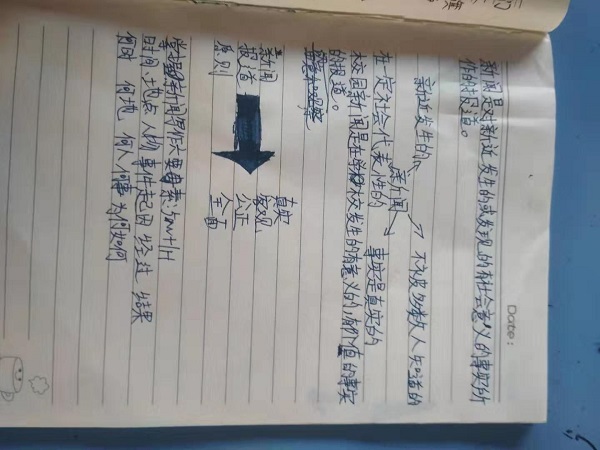 Date:
新闻是对新近发生的或发现的有社会意义的事实所
作的报道。
新近发生的 不被多数人知道的
新闻
在定社会代表性的 事实是真实的
校园新闻是在学校发生的有意义的,有价值的事实
的报道。
新闻
报道
原则
真实
客观
公正
全面
掌握新闻写作六要素:5w+1H
时间、地点 人物 事件起因 经过 结果
何时 何地 何人 何事 为何 如何